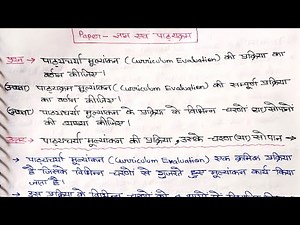 Paper - ज्ञान एवं पाठ्यक्रम
प्रश्न → पाठ्यचर्या मूल्यांकन (Curriculum Evaluation) की प्रक्रिया का
वर्णन कीजिए।
अथवा पाठ्यक्रम मूल्यांकन (Curriculum Evaluation) की सम्पूर्ण प्रक्रिया
का वर्णन कीजिए।
अथवा पाठ्यचर्या मूल्यांकन के प्रक्रिया के विभिन्न चरणों या सोपानों
की व्याख्या कीजिए।
उत्तर → पाठ्यचर्या मूल्यांकन की प्रक्रिया, उसके चरण (या) सोपान →
• पाठ्यचर्या मूल्यांकन (Curriculum Evaluation) एक क्रमिक प्रक्रिया
है जिसके विभिन्न चरणों से गुजरते हुए मूल्यांकन कार्य किया
जाता है।
• इस प्रक्रिया के विभिन्न चरणों को